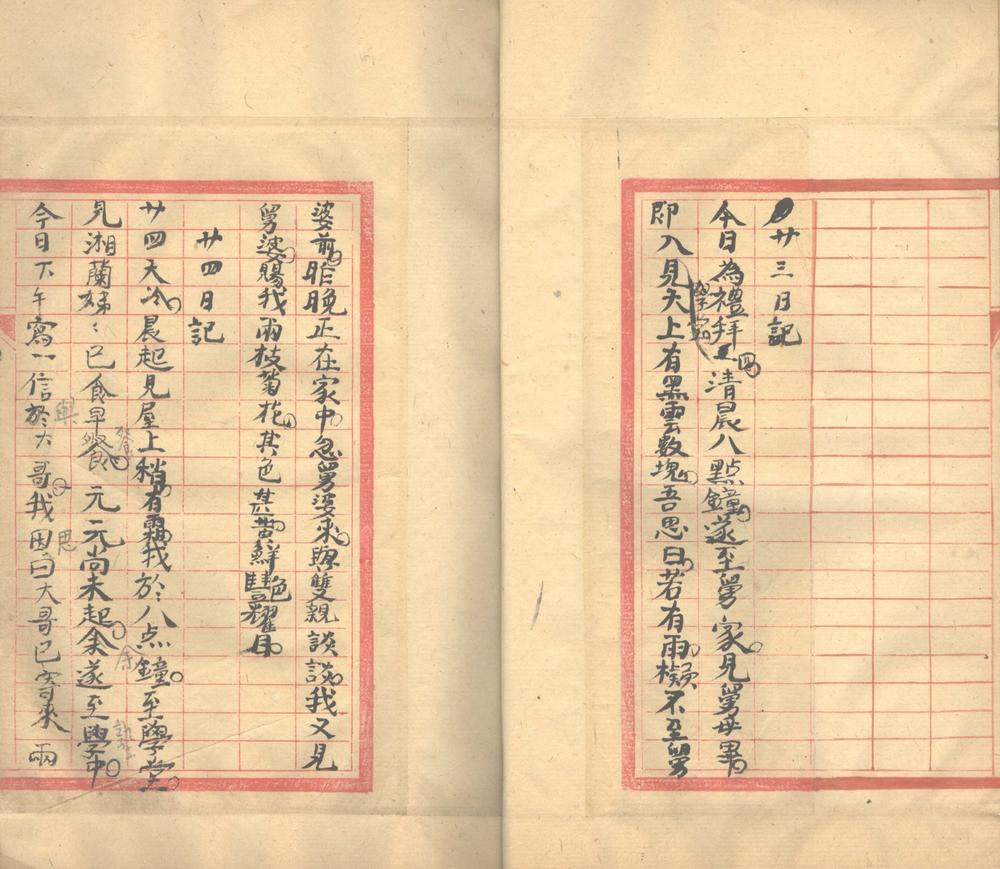 廿三日記
今日為禮拜四清晨八點鐘遂至舅家見舅母畢
即入學堂見天上有黑雲數塊吾思曰若有雨擬不至舅
婆前昨晚正在家中忽舅婆來與雙親談談我又見
舅婆賜我兩枝菊花其色甚黃鮮豔耀目
廿四日記
廿四天冷晨起見屋上稍有霜我於八点鐘至學堂
見湘蘭娣々已食早餐元元尚未起余遂至學中
今日下午寫一信於大哥我因曰大哥已寄來兩
與
思
余
塾